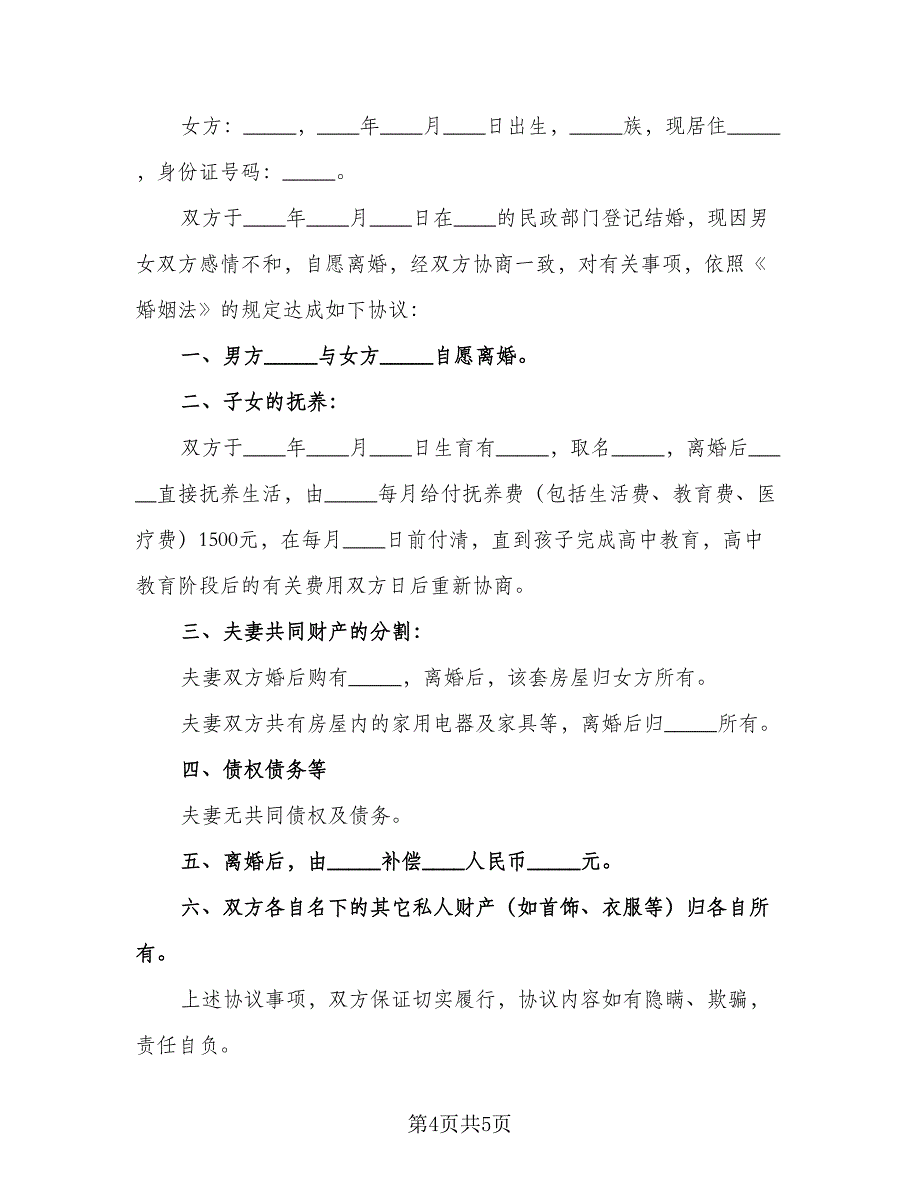 女方：_____，____年____月____日出生，_____族，现居住_____
，身份证号码：_____。
双方于____年____月____日在____的民政部门登记结婚，现因男
女双方感情不和，自愿离婚，经双方协商一致，对有关事项，依照《
婚姻法》的规定达成如下协议：
一、男方_____与女方_____自愿离婚。
二、子女的抚养：
双方于____年____月____日生育有_____，取名_____，离婚后___
__直接抚养生活，由_____每月给付抚养费（包括生活费、教育费、医
疗费）1500元，在每月____日前付清，直到孩子完成高中教育，高中
教育阶段后的有关费用双方日后重新协商。
三、夫妻共同财产的分割：
夫妻双方婚后购有_____，离婚后，该套房屋归女方所有。
夫妻双方共有房屋内的家用电器及家具等，离婚后归_____所有。
四、债权债务等
夫妻无共同债权及债务。
五、离婚后，由_____补偿____人民币_____元。
六、双方各自名下的其它私人财产（如首饰、衣服等）归各自所
有。
上述协议事项，双方保证切实履行，协议内容如有隐瞒、欺骗，
责任自负。
第4页共5页